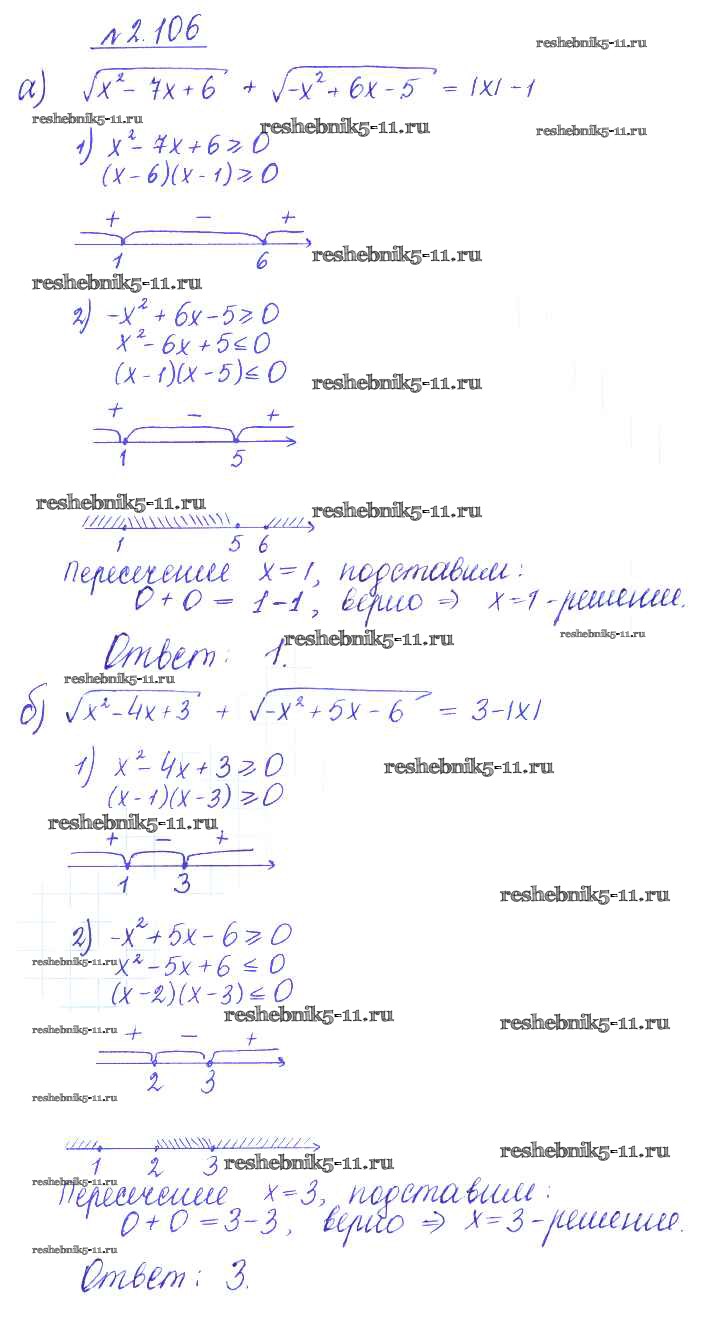 №2.106
reshebnik5-11.ru
а) √(x² - 7x + 6) + √(-x² + 6x - 5) = |x| - 1
reshebnik5-11.ru reshebnik5-11.ru reshebnik5-11.ru
1) x² - 7x + 6 ≥ 0
(x - 6)(x - 1) ≥ 0
+ - +
1 6 reshebnik5-11.ru
reshebnik5-11.ru
2) -x² + 6x - 5 ≥ 0
x² - 6x + 5 ≤ 0
(x - 1)(x - 5) ≤ 0 reshebnik5-11.ru
+ - +
1 5
reshebnik5-11.ru reshebnik5-11.ru
1 5 6
Пересечение x = 1, подставим:
0 + 0 = 1 - 1, верно ⇒ x = 1 - решение.
reshebnik5-11.ru reshebnik5-11.ru
Ответ: 1.
reshebnik5-11.ru
б) √(x² - 4x + 3) + √(-x² + 5x - 6) = 3 - |x|
1) x² - 4x + 3 ≥ 0 reshebnik5-11.ru
(x - 1)(x - 3) ≥ 0
reshebnik5-11.ru
+ - +
1 3
reshebnik5-11.ru
2) -x² + 5x - 6 ≥ 0
reshebnik5-11.ru x² - 5x + 6 ≤ 0
(x - 2)(x - 3) ≤ 0
reshebnik5-11.ru reshebnik5-11.ru
reshebnik5-11.ru + - +
2 3
reshebnik5-11.ru
reshebnik5-11.ru
1 2 3 reshebnik5-11.ru
reshebnik5-11.ru
Пересечение x = 3, подставим:
0 + 0 = 3 - 3, верно ⇒ x = 3 - решение.
reshebnik5-11.ru
Ответ: 3.